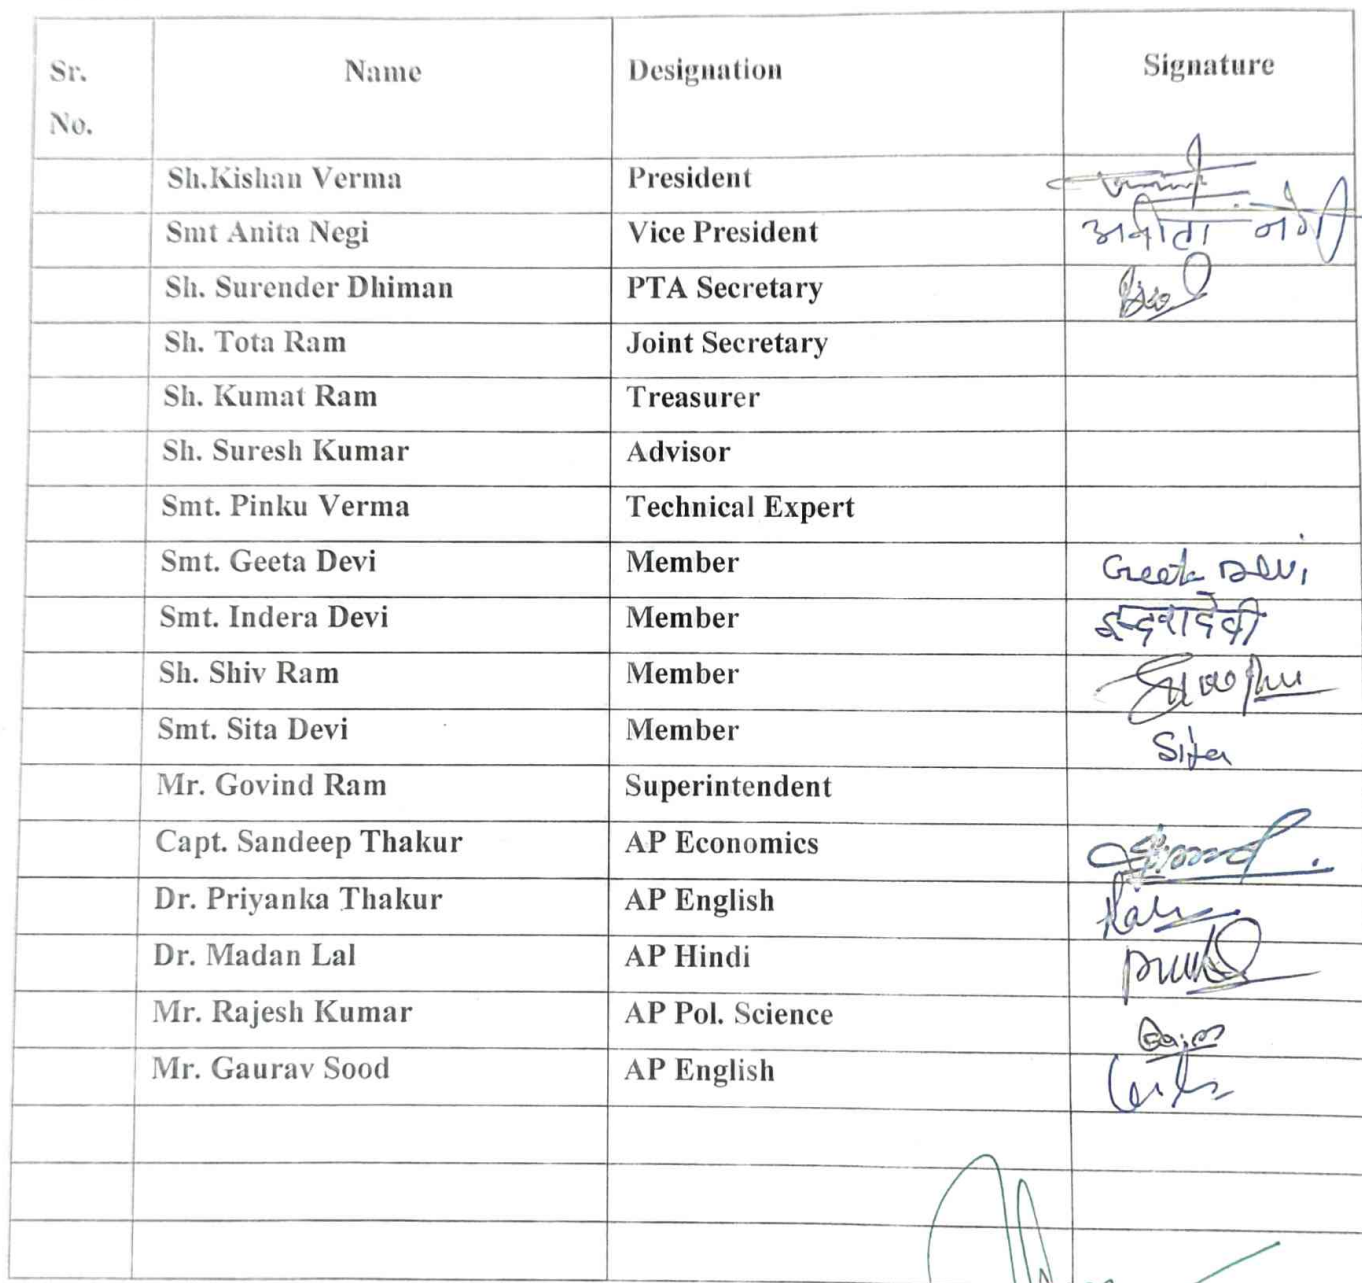 Sr. No. Name Designation Signature
Sh.Kishan Verma President
Smt Anita Negi Vice President अनीता नेगी
Sh. Surender Dhiman PTA Secretary
Sh. Tota Ram Joint Secretary
Sh. Kumat Ram Treasurer
Sh. Suresh Kumar Advisor
Smt. Pinku Verma Technical Expert
Smt. Geeta Devi Member Geeta Devi
Smt. Indera Devi Member इन्दरादेवी
Sh. Shiv Ram Member
Smt. Sita Devi Member Sita
Mr. Govind Ram Superintendent
Capt. Sandeep Thakur AP Economics
Dr. Priyanka Thakur AP English
Dr. Madan Lal AP Hindi
Mr. Rajesh Kumar AP Pol. Science
Mr. Gaurav Sood AP English